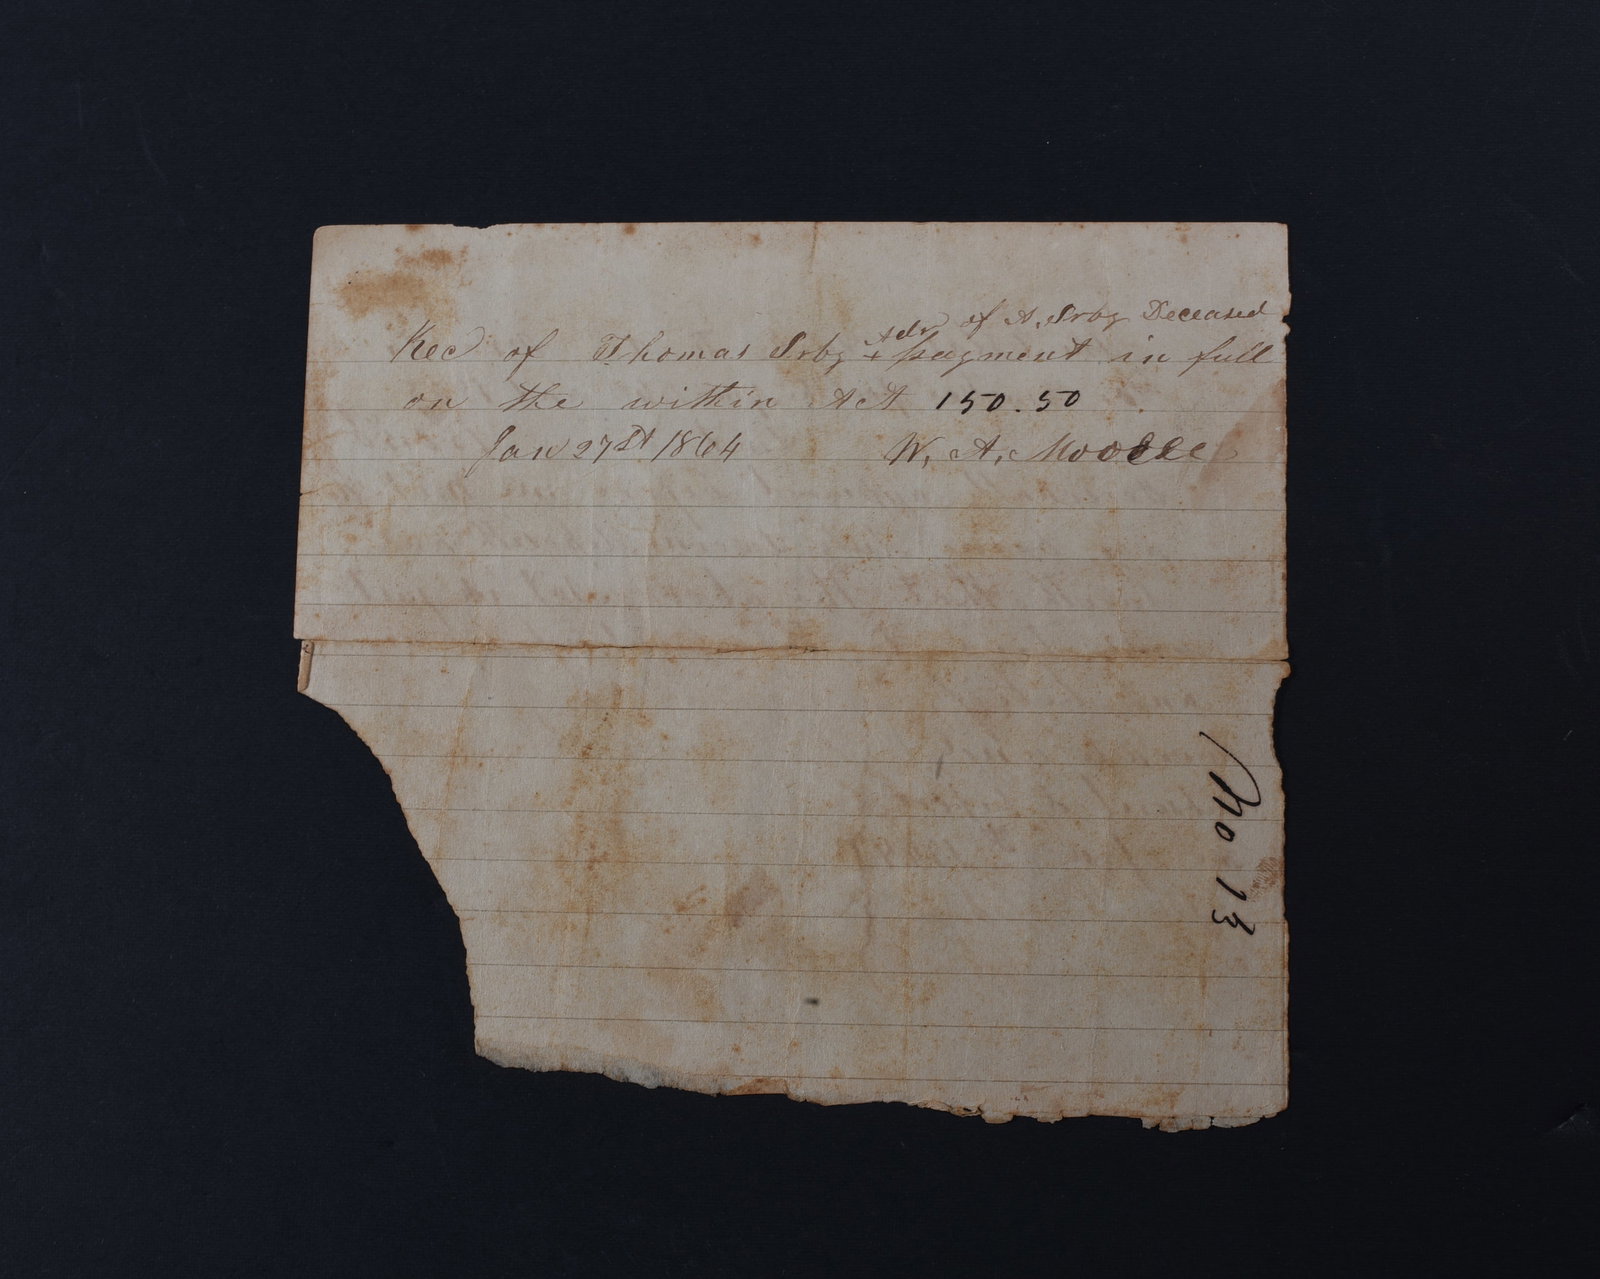 Adr of A. Srby Deceased
Rec of Thomas Srby + payment in full
on the within Act 150.50
Jan 27st 1864 W. A. Moore
No 13